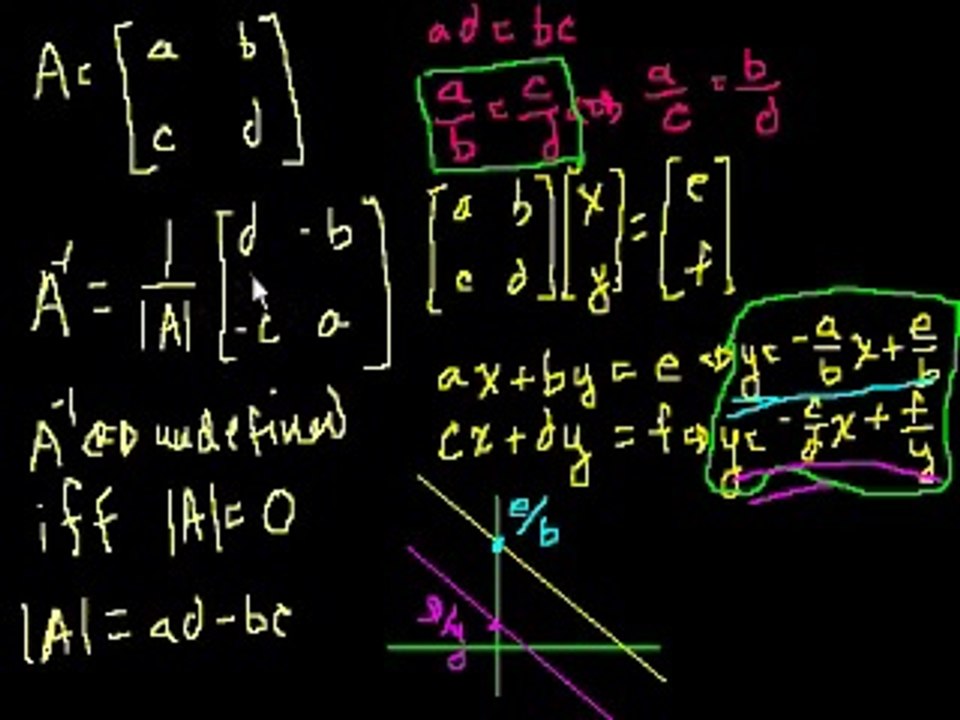 A = [a b
c d]
A⁻¹ = 1/|A| [d -b
-c a]
A⁻¹ ⇔ undefined
iff |A| = 0
|A| = ad - bc
ad = bc
a/b = c/d ⇔ a/c = b/d
[a b
c d] [x
y] = [e
f]
ax + by = e ⇒ y = -a/b x + e/b
cx + dy = f ⇒ y = -c/d x + f/y
e/b
f/y